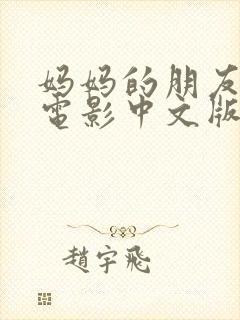 妈妈的朋友
電影中文版
趙宇飛